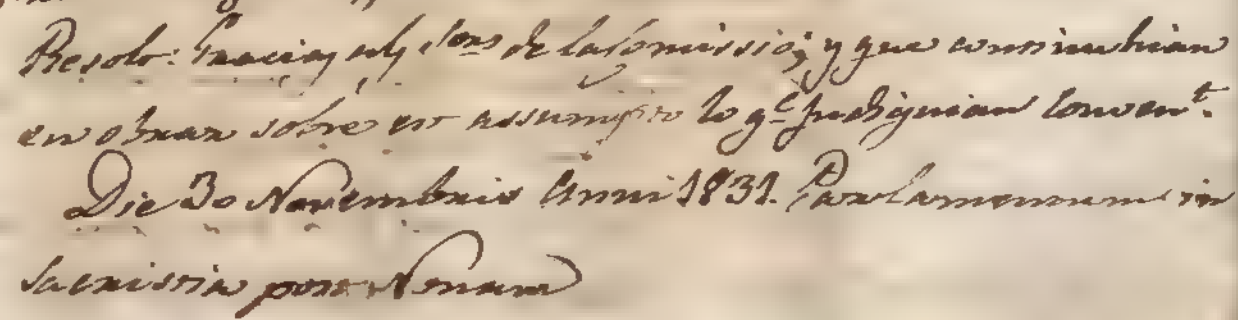 Resolr: Gracias als Srs de la Comissió; y que continuhian
en obrar sobre est assumpto lo qe judiguian convent.
Die 30 Novembris Anni 1831. Parlamentum in
sacristia post Nonam